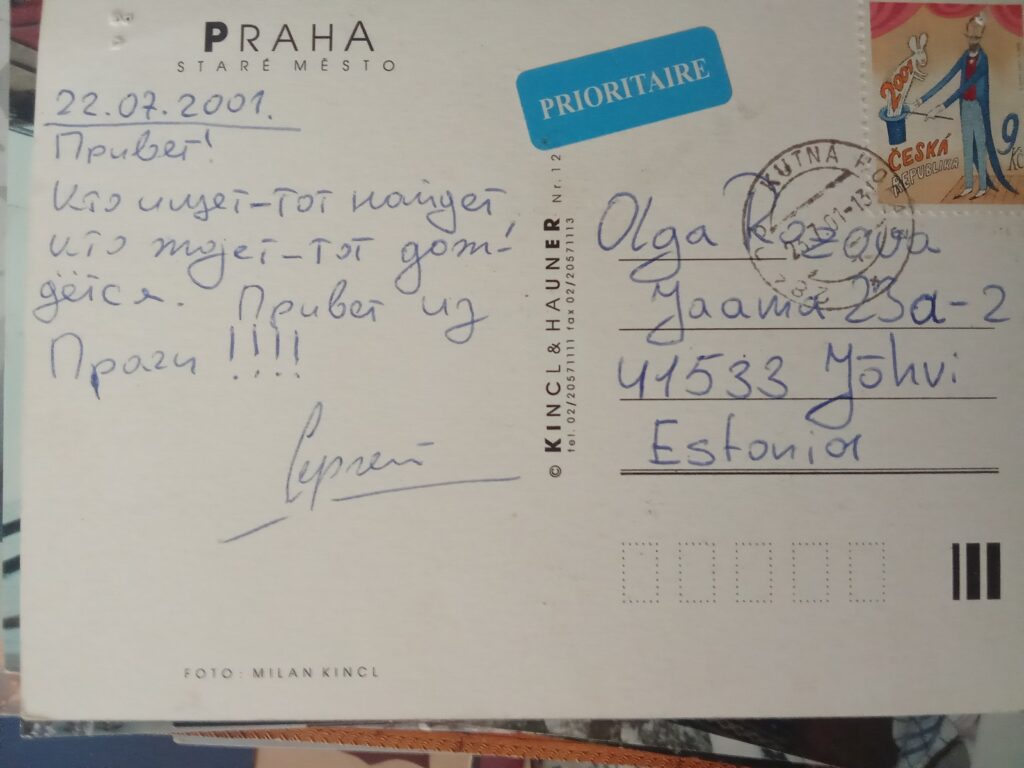 PRAHA
STARÉ MĚSTO
22.07.2001.
Привет!
Кто ищет-тот найдет,
кто ждет-тот дож-
дётся. Привет из
Праги !!!!
Сергей
FOTO: MILAN KINCL
© KINCL & HAUNER Nr. 12
tel. 02/20571111 fax 02/20571113
PRIORITAIRE
2001
ČESKÁ
REPUBLIKA
9
Kč
KUTNÁ HO
Olga Rozova
Jaama 23a-2
41533 Jõhvi
Estonia